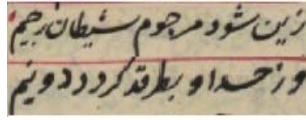 زین شود مرجوم شیطان رجیم
وز حسد او بطرقد کردد دو نیم